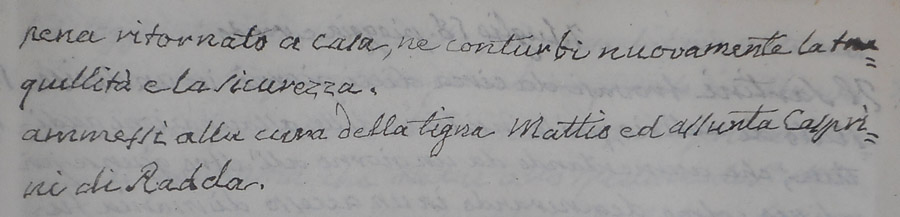 pena ritornato a casa, ne conturbi nuovamente la tran=
quillità e la sicurezza.
ammessi alla cura della tigna Mattio ed assunta Casprì=
ni di Radda.